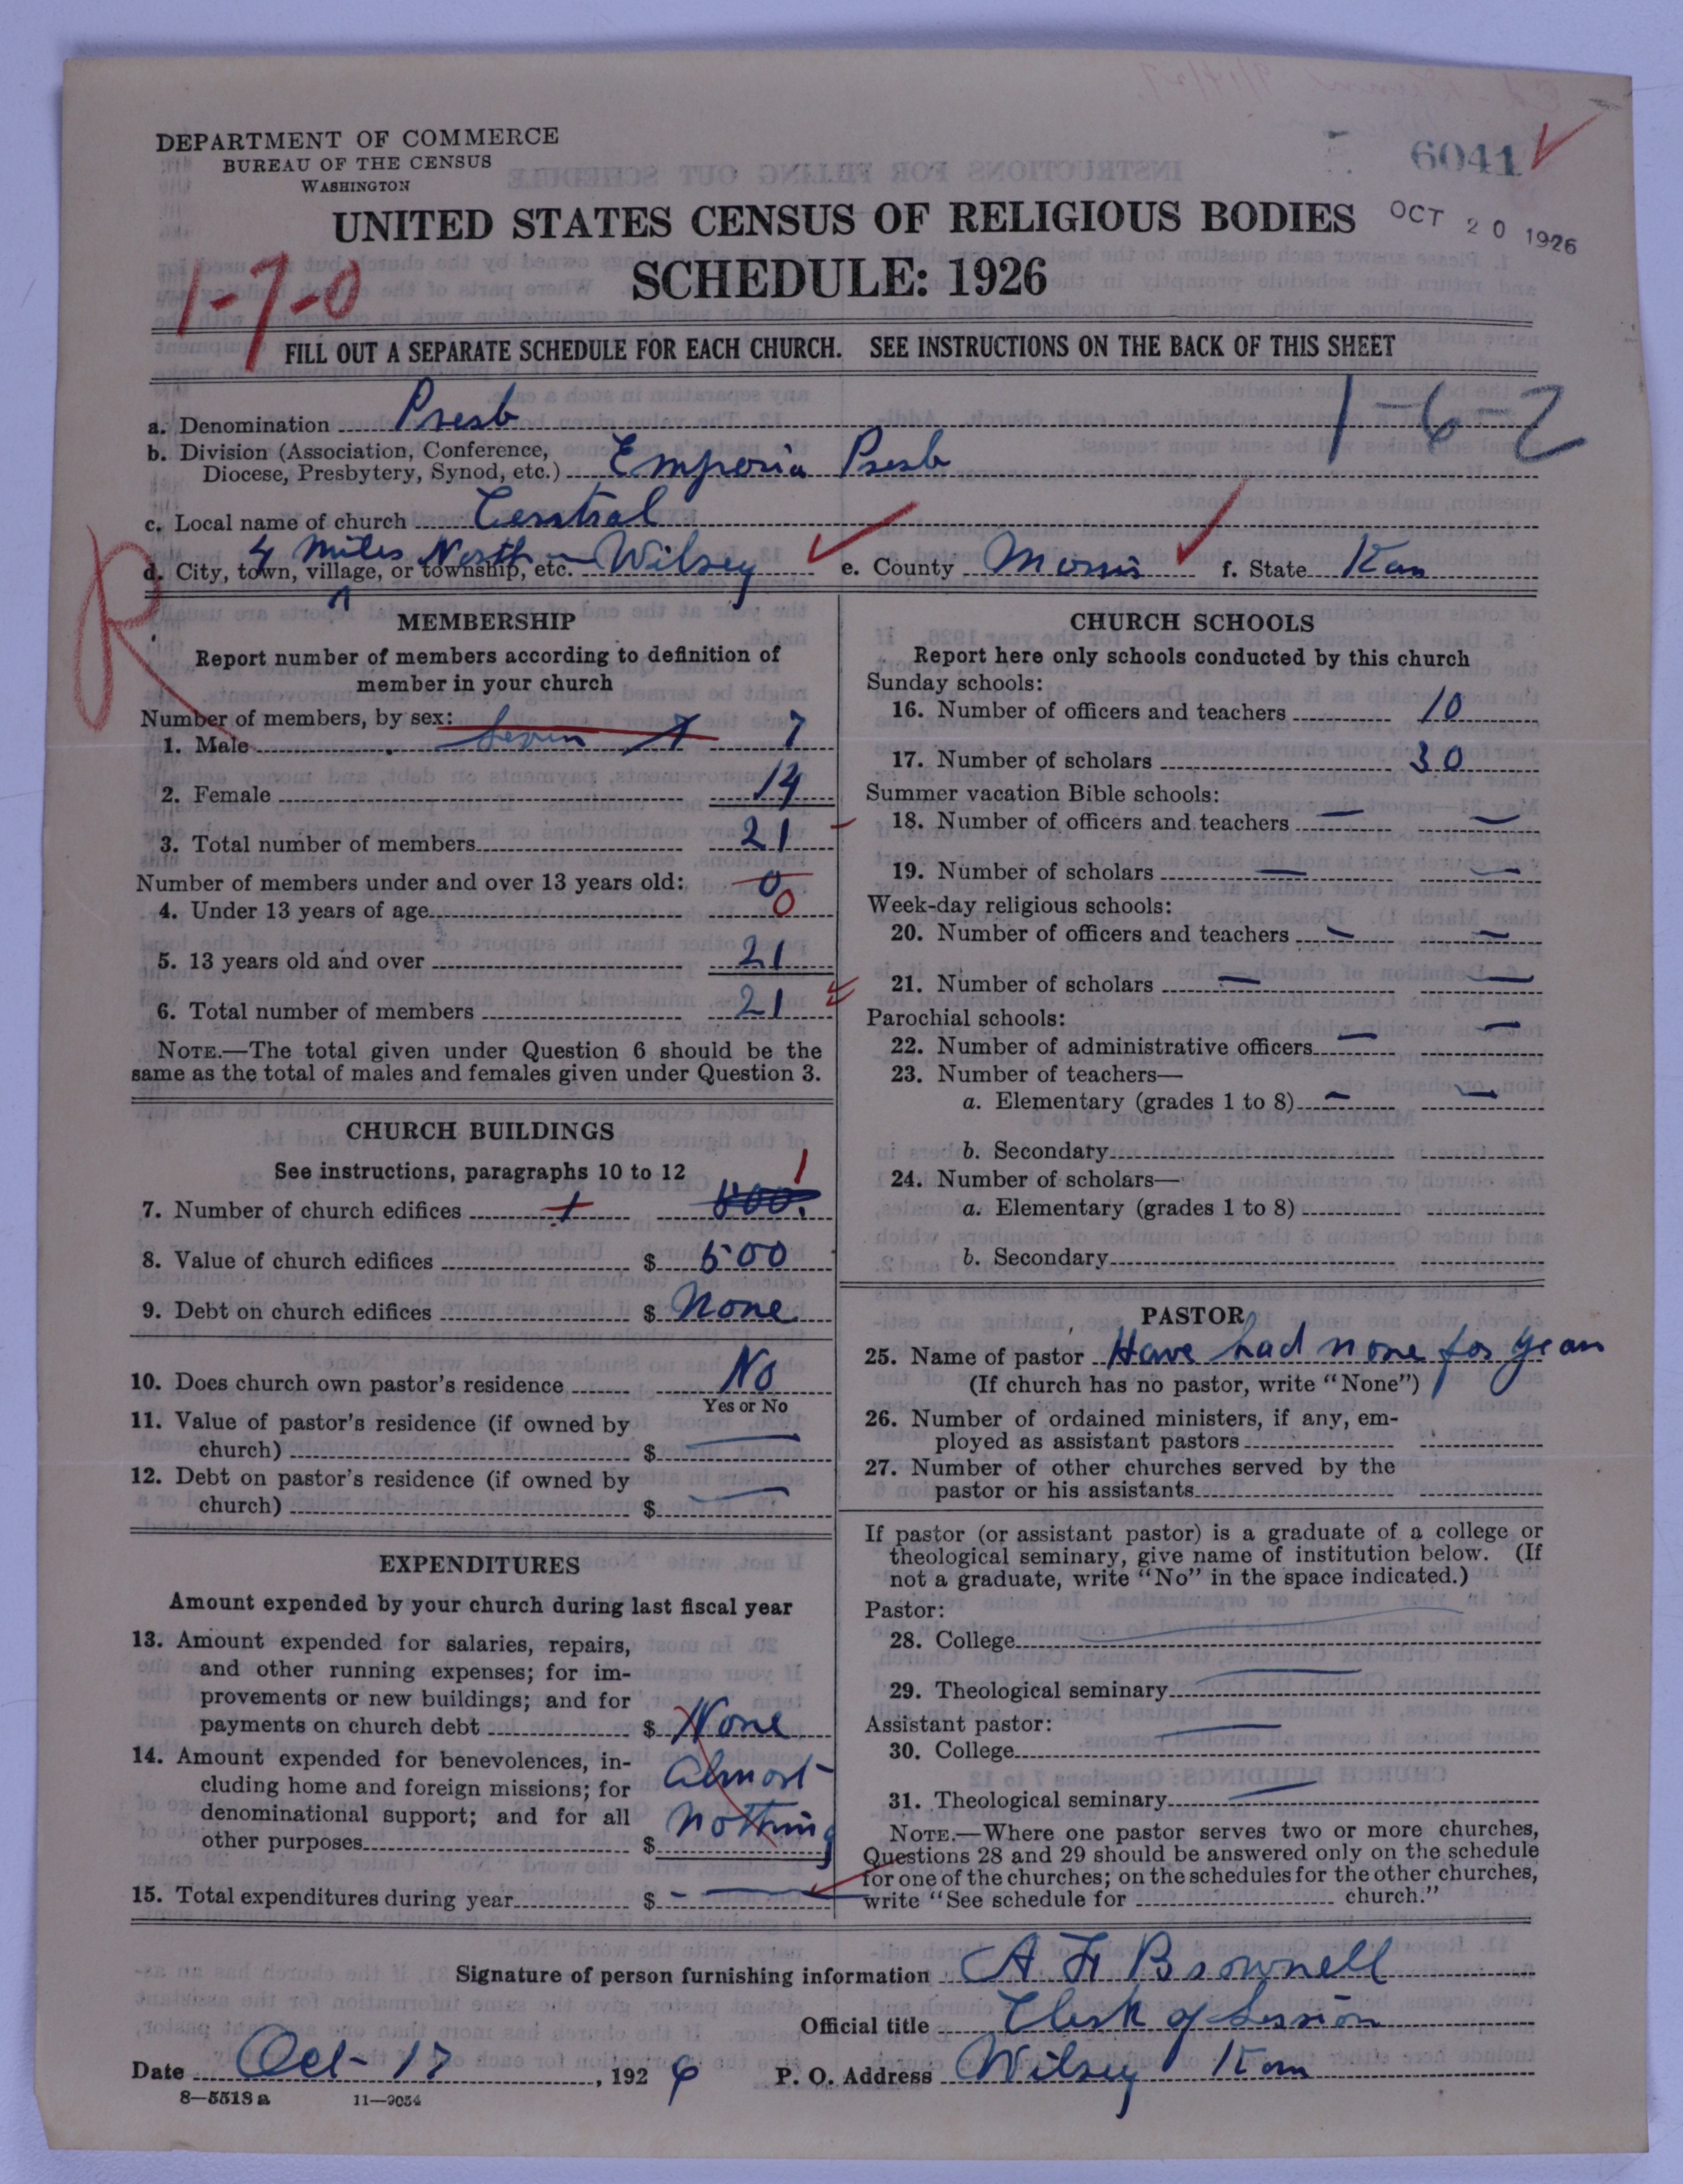 6041
DEPARTMENT OF COMMERCE
BUREAU OF THE CENSUS
WASHINGTON
UNITED STATES CENSUS OF RELIGIOUS BODIES
OCT 20 1926
SCHEDULE: 1926
1-7-0
FILL OUT A SEPARATE SCHEDULE FOR EACH CHURCH. SEE INSTRUCTIONS ON THE BACK OF THIS SHEET
1-6-2
a. Denomination Presb
b. Division (Association, Conference,
Diocese, Presbytery, Synod, etc.) Emporia Presb
c. Local name of church Central
4 miles North -
d. City, town, village, or township, etc. Wilsey e. County Morris f. State Kan
R
MEMBERSHIP
Report number of members according to definition of
member in your church
Number of members, by sex:
1. Male Seven 7 7
2. Female 14
3. Total number of members 21
Number of members under and over 13 years old: 0
4. Under 13 years of age 0
5. 13 years old and over 21
6. Total number of members 21
NOTE.—The total given under Question 6 should be the
same as the total of males and females given under Question 3.
CHURCH BUILDINGS
See instructions, paragraphs 10 to 12
7. Number of church edifices 1 1
8. Value of church edifices $ 500
9. Debt on church edifices $ None
10. Does church own pastor's residence No
Yes or No
11. Value of pastor's residence (if owned by
church) $ —
12. Debt on pastor's residence (if owned by
church) $ —
EXPENDITURES
Amount expended by your church during last fiscal year
13. Amount expended for salaries, repairs,
and other running expenses; for im-
provements or new buildings; and for
payments on church debt $ None
14. Amount expended for benevolences, in-
cluding home and foreign missions; for
denominational support; and for all
other purposes $ Almost nothing
15. Total expenditures during year $ - —
CHURCH SCHOOLS
Report here only schools conducted by this church
Sunday schools:
16. Number of officers and teachers 10
17. Number of scholars 30
Summer vacation Bible schools:
18. Number of officers and teachers — —
19. Number of scholars — —
Week-day religious schools:
20. Number of officers and teachers — —
21. Number of scholars — —
Parochial schools:
22. Number of administrative officers — —
23. Number of teachers—
a. Elementary (grades 1 to 8) — —
b. Secondary
24. Number of scholars—
a. Elementary (grades 1 to 8)
b. Secondary
PASTOR
25. Name of pastor Have had none for year
(If church has no pastor, write "None")
26. Number of ordained ministers, if any, em-
ployed as assistant pastors
27. Number of other churches served by the
pastor or his assistants
If pastor (or assistant pastor) is a graduate of a college or
theological seminary, give name of institution below. (If
not a graduate, write "No" in the space indicated.)
Pastor:
28. College —
29. Theological seminary —
Assistant pastor:
30. College —
31. Theological seminary —
NOTE.—Where one pastor serves two or more churches,
Questions 28 and 29 should be answered only on the schedule
for one of the churches; on the schedules for the other churches,
write "See schedule for church."
Signature of person furnishing information A H Brownell
Official title Clerk of Session
Date Oct- 17, 1926 P. O. Address Wilsey Kan
8—5513 a 11—9054